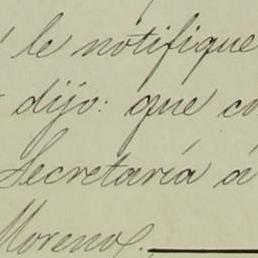 le notifique
dijo: que co
Secretaría á
Moreno.